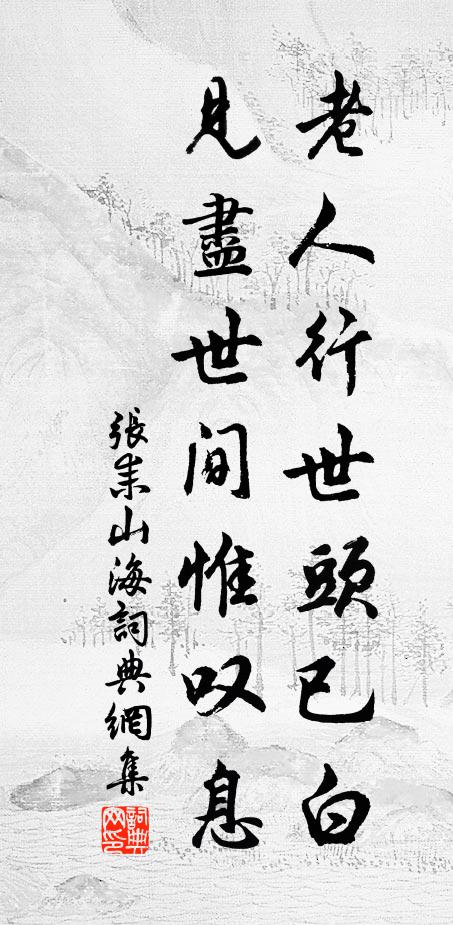 老人行世頭已白
見盡世間惟叹息
張耒山海詞典網集
詞典網印